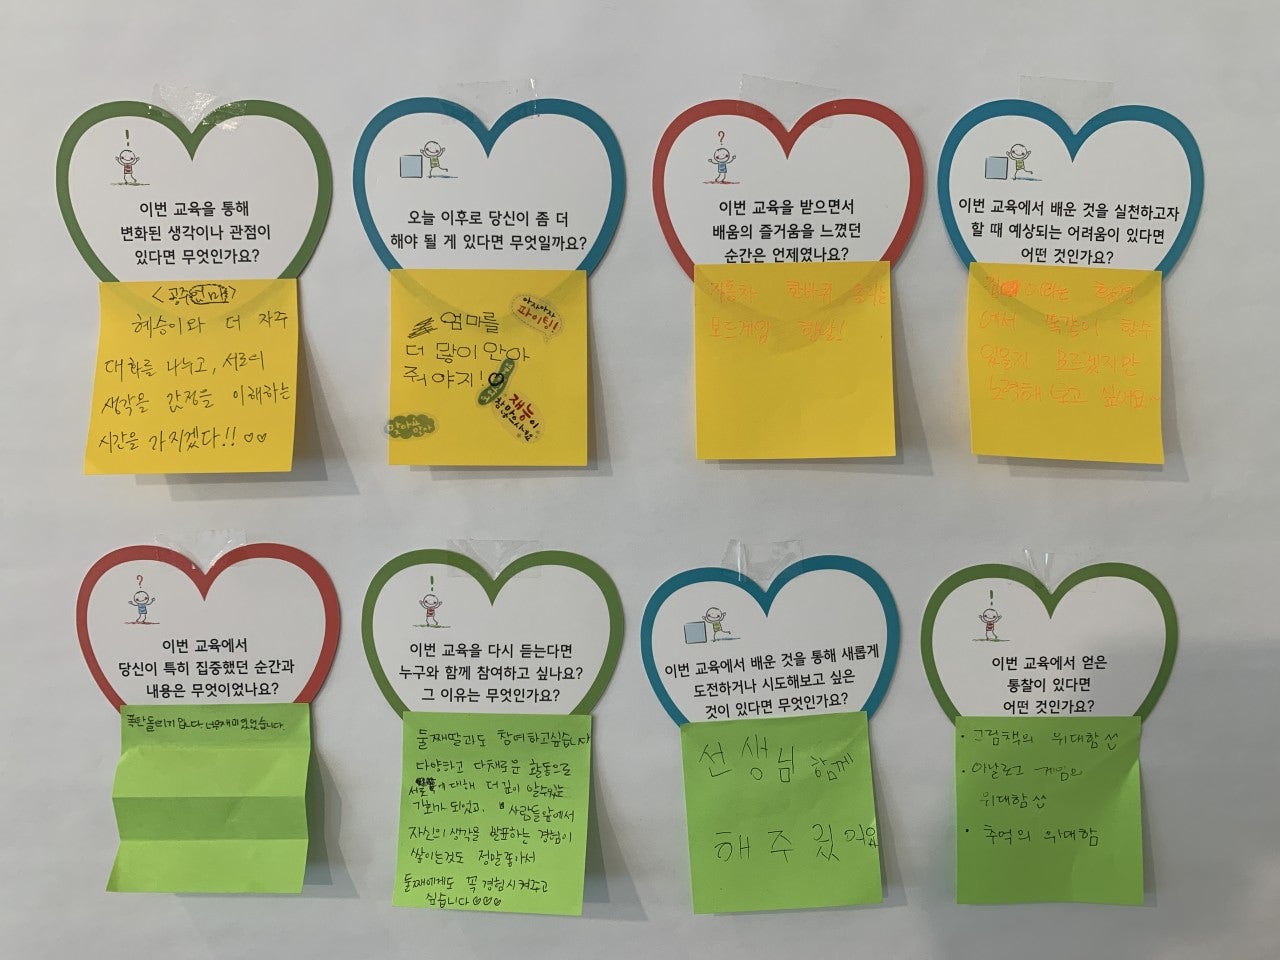 이번 교육을 통해
변화된 생각이나 관점이
있다면 무엇인가요?
<공주>
혜승이와 더 자주
대화를 나누고, 서로의
생각을 감정을 이해하는
시간을 가지겠다!! ♡♡
오늘 이후로 당신이 좀 더
해야 될 게 있다면 무엇일까요?
엄마를
더 많이 안아
줘야지!
아자아자
파이팅!
재능이
참많으시네
이번 교육을 받으면서
배움의 즐거움을 느꼈던
순간은 언제였나요?
자동차 한바퀴
보드게임
이번 교육에서 배운 것을 실천하고자
할 때 예상되는 어려움이 있다면
어떤 것인가요?
이라는
에서 똑같이 할수
있을지 모르겠지만
노력해 보고 싶어요~
이번 교육에서
당신이 특히 집중했던 순간과
내용은 무엇이었나요?
폭탄돌리기 입니다 너무재미있었습니다.
이번 교육을 다시 듣는다면
누구와 함께 참여하고 싶나요?
그 이유는 무엇인가요?
둘째딸과도 참여하고싶습니다
다양하고 다채로운 활동으로
서로에 대해 더 깊이 알수있는
기회가 되었고, 사람들앞에서
자신의 생각을 발표하는 경험이
쌓이는것도 정말좋아서
둘째에게도 꼭 경험시켜주고
싶습니다 ♡♡♡
이번 교육에서 배운 것을 통해 새롭게
도전하거나 시도해보고 싶은
것이 있다면 무엇인가요?
선생님 함께
해주셨어요
이번 교육에서 얻은
통찰이 있다면
어떤 것인가요?
· 그림책의 위대함
· 아날로그 게임의
위대함
· 추억의 위대함